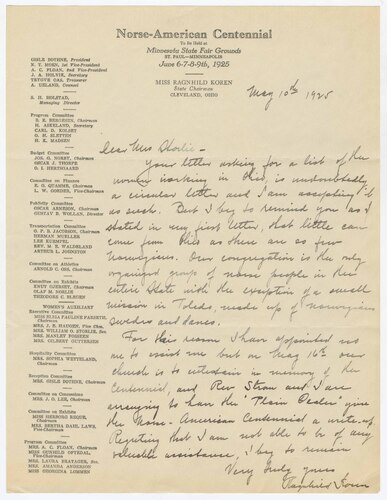 Norse-American Centennial
To Be Held at
Minnesota State Fair Grounds
ST. PAUL—MINNEAPOLIS
June 6-7-8-9th, 1925
MISS RAGNHILD KOREN
State Chairman
CLEVELAND, OHIO
GISLE BOTHNE, President
N. T. MOEN, 1st Vice-President
A. C. FLOAN, 2nd Vice-President
J. A. HOLVIK, Secretary
TRYGVE OAS, Treasurer
A. UELAND, Counsel
S. H. HOLSTAD,
Managing Director
Program Committee
B. E. BERGESEN, Chairman
H. ASKELAND, Secretary
CARL D. KOLSET
O. M. SLETTEN
H. E. MADSEN
Budget Committee
JOS. G. NORBY, Chairman
OSCAR J. THORPE
O. I. HERTSGAARD
Committee on Finance
E. G. QUAMME, Chairman
L. W.
Publicity Committee
OSCAR ARNESON, Chairman
GUSTAV B. WOLLAN, Director
Transportation Committee
O. P. B. JACOBSON, Chairman
HERMAN MUELLER
LEE KUEMPEL
REV. M. E. WALDELAND
ARTHUR L. JOHNSTON
Committee on Athletics
ARNOLD C. OSS, Chairman
Committee on Exhibits
KNUT GJERSET, Chairman
OLAF M. NORLIE
THEODORE C. BLEGEN
WOMEN'S AUXILIARY
Executive Committee
MISS ELISA PAULINE FARSETH, Chairman
MRS. J. R. HAUGEN, Vice Chm.
MRS. WILLIAM O. STORLIE, Sec.
MRS. MANLEY FOSSEEN
MRS. GILBERT GUTTERSEN
Hospitality Committee
MRS. SOPHIA WETTELAND, Chairman
Reception Committee
MRS. GISLE BOTHNE, Chairman
Committee on Concessions
MRS. J. O. LEE, Chairman
Committee on Exhibits
MISS HERBORG REQUE, Chairman
MRS. BERTHA DAHL LAWS, Vice-Chairman
Program Committee
MRS. A. C. FLOAN, Chairman
MISS GUNHILD OFTEDAL, Vice-Chairman
MRS. LAURA BRATAGER, Sec.
MRS. AMANDA ANDERSON
MISS GEORGINA LOMMEN
May 10th 1925
Dear Mrs Storlie—
Your letter asking for a list of the
women working in Ohio, is undoubtedly
a circular letter and I am accepting it
as such. But I beg to remind you as I
stated in my first letter, that little can
come from Ohio as there are so few
Norwegians. Our congregation is the only
organized group of norse people in the
entire State with the exception of a small
mission in Toledo, made up of norwegians
swedes and danes.
For this reason I have appointed no
one to assist me but on May 16th our
church is to entertain in memory of the
Centennial, and Rev Strom and I are
arranging to have the "Plain Dealer" give
the Norse-American Centennial a write-up.
Regretting that I am not able to be of any
valuable assistance, I beg to remain
Very truly yours
Ragnhild Koren